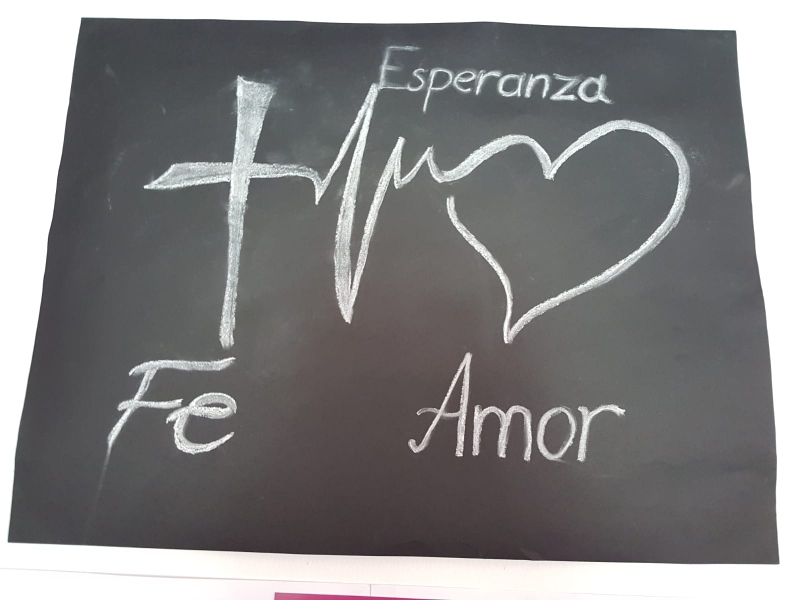 Esperanza
Fe
Amor